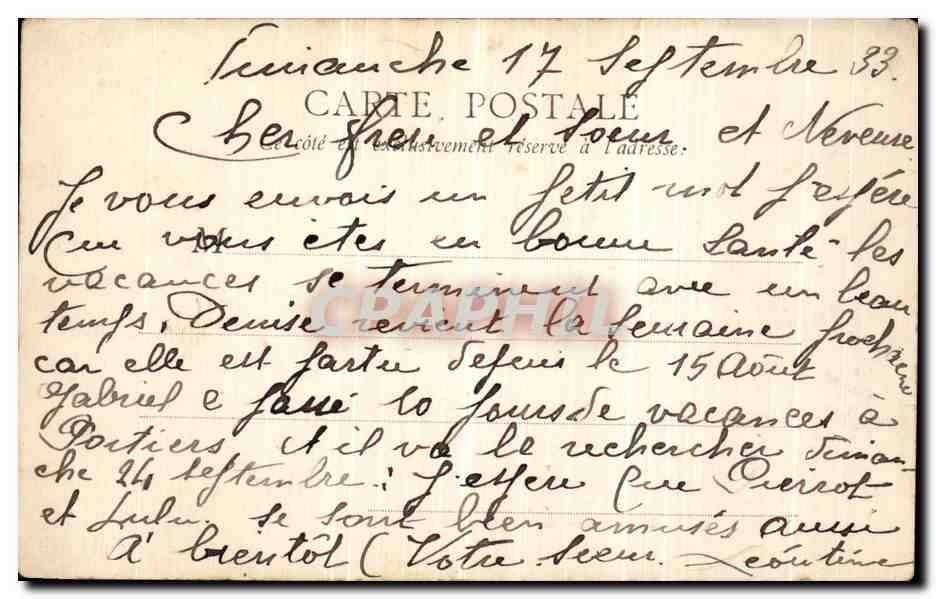 Dimanche 17 Septembre 33.
CARTE POSTALE
Cher frere et Soeur et Neveux
Ce côté est exclusivement réservé à l'adresse.
Je vous envois un petit mot J'espère
que vous etes en bonne Santé les
vacances se terminent avec un beau
temps, Denise revient la Semaine prochaine
CPRAPHIL
car elle est partie depuis le 15 Août
Gabriel a passé 10 Jours de vacances à
Poitiers et il va le rechercher diman-
che 24 septembre. J'espere que Pierrot
et Lulu se sont bien amusés aussi
À bientôt Votre Soeur Léontine